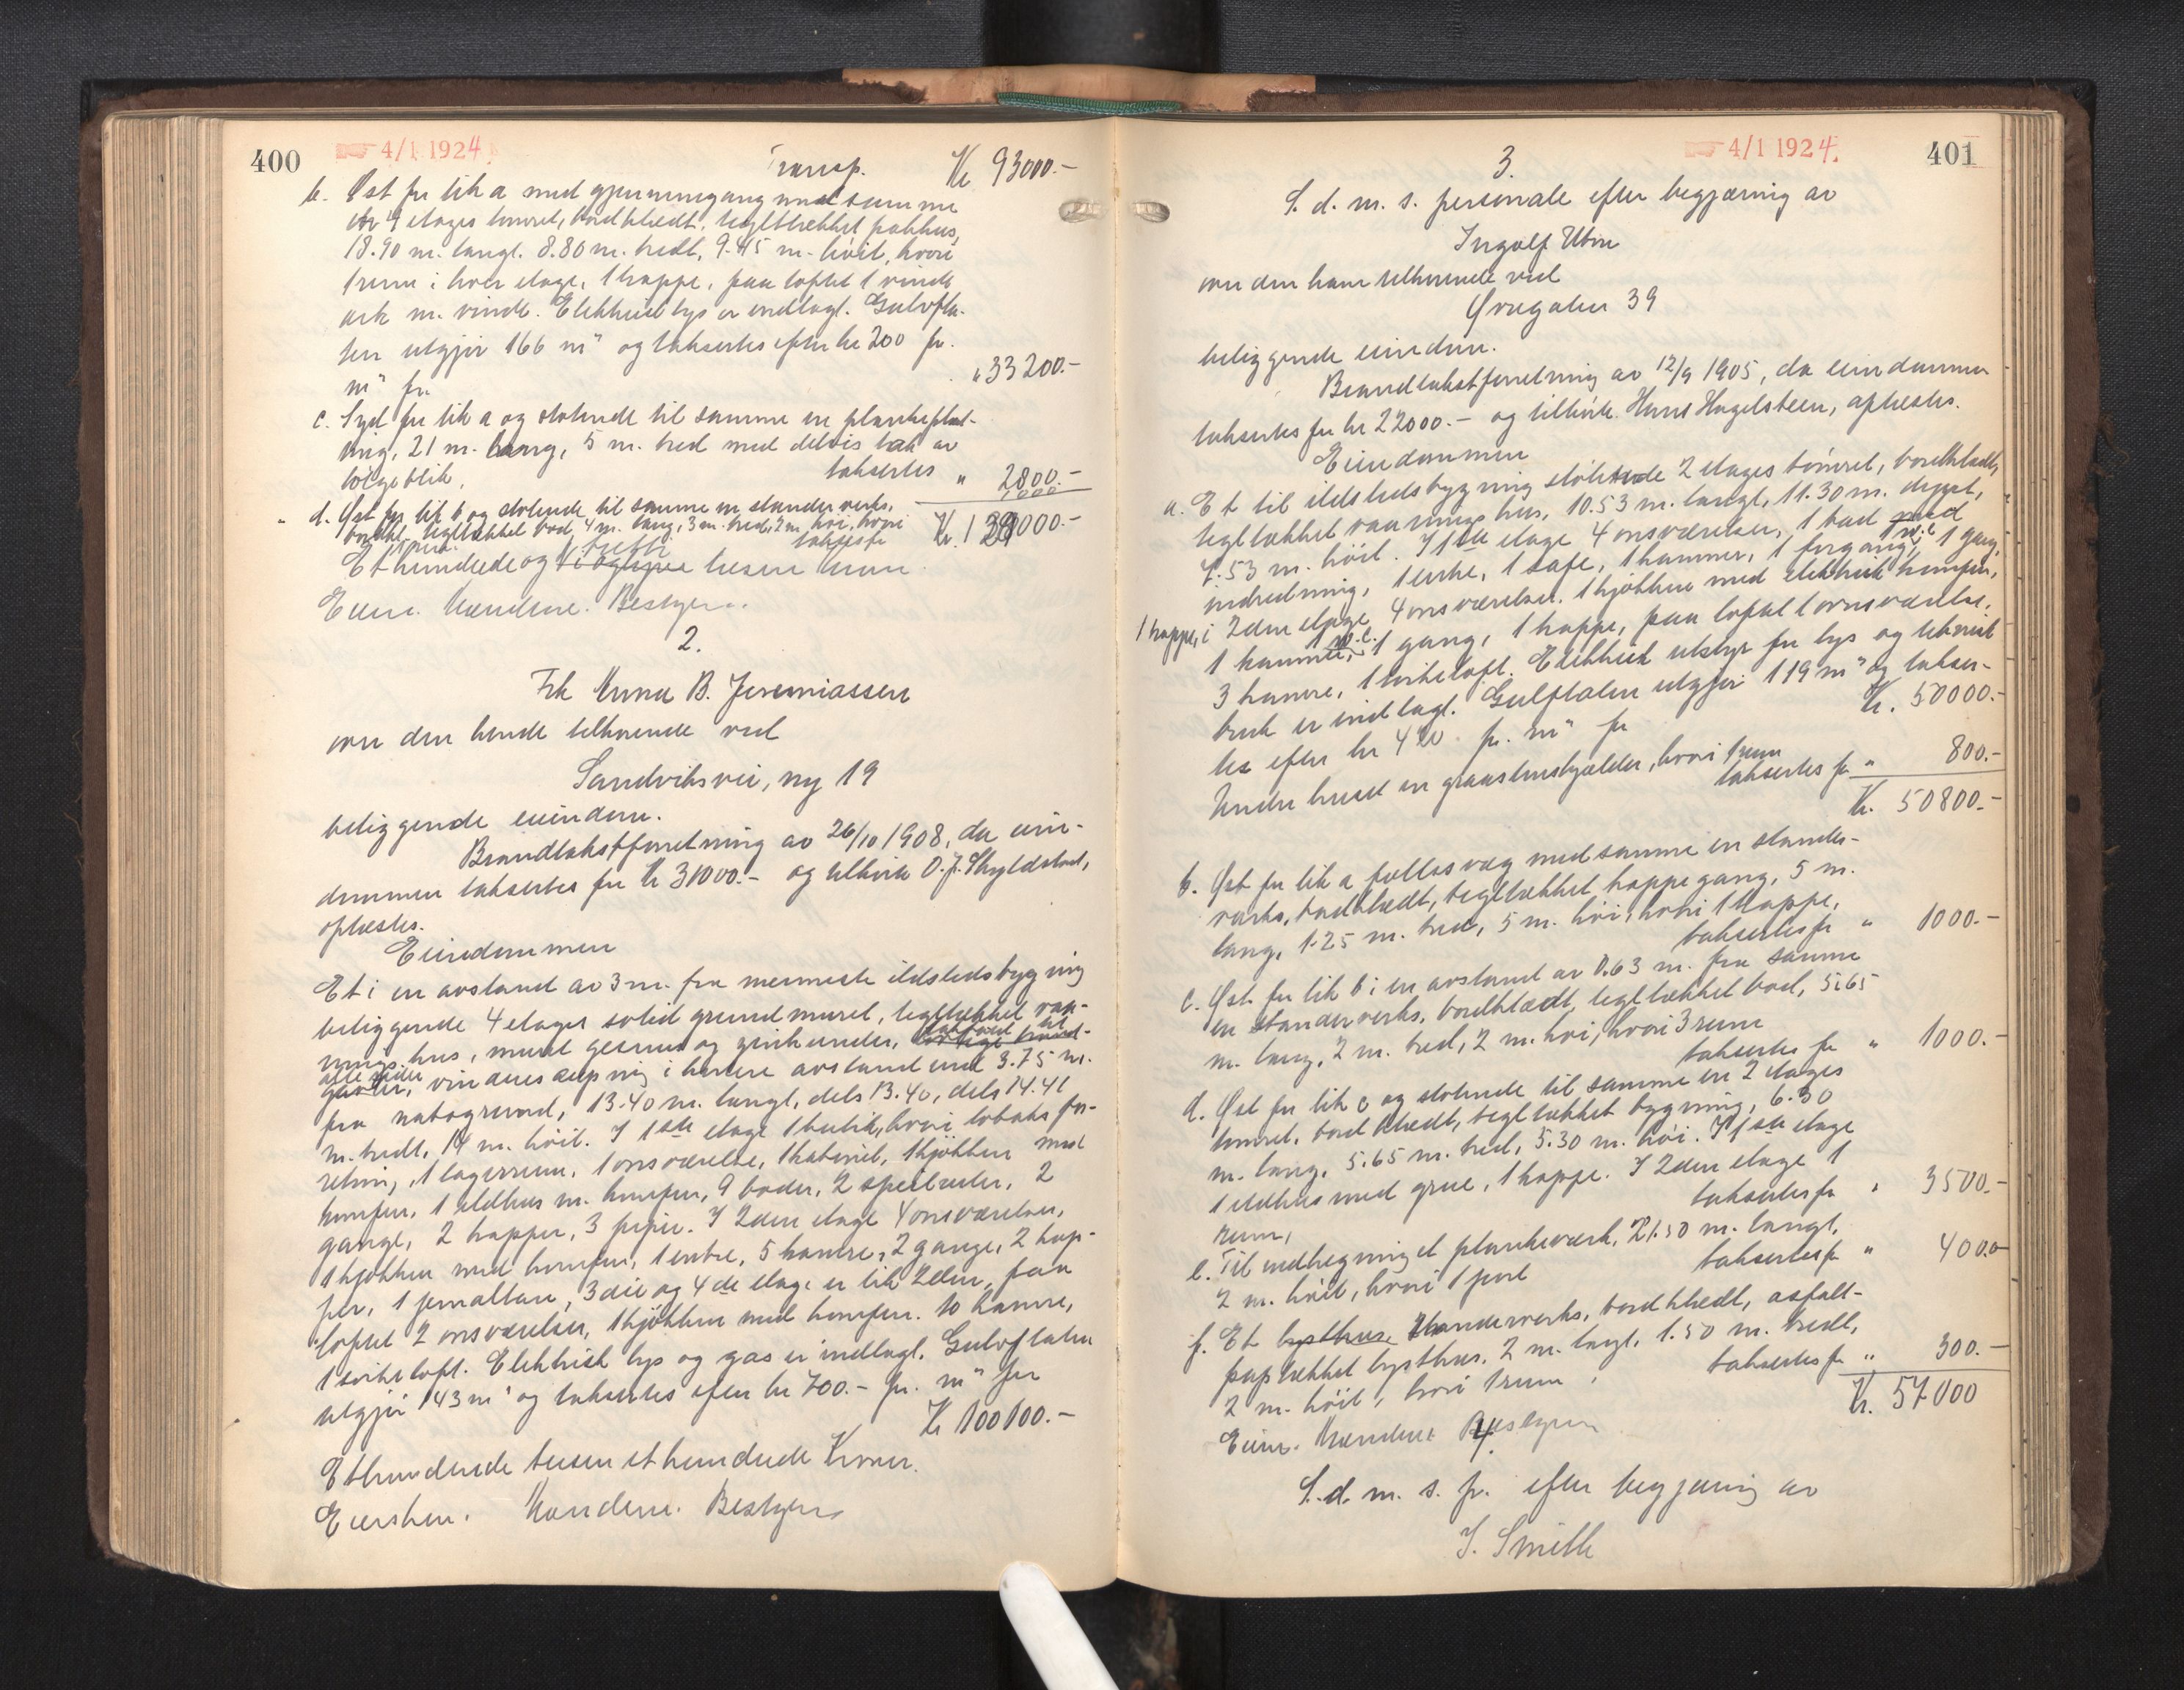 400
4/1 1924.
Transp. Kr 93000.-
b. Øst for lit. a med gjennemgang med samme
en 4 etages tømret, bordklædt, tegltækket pakhus,
18.90 m. langt. 8.80 m. bredt, 9.45 m. høit, hvori
1 rum i hver etage, 1 trappe, paa loftet 1 vinde
ark m. vinde. Elektrisk lys er indlagt. Gulvfla-
ten utgjør 166 m² og takseres efter kr 200 pr.
m² for " 33200.-
c. Syd for lit. a og støtende til samme en plankeplat-
ting, 21 m. lang, 5 m. bred med delvis tak av
bølgeblik, takseres " 2800.-
1000
d. Øst for lit. b og støtende til samme en standerverks,
bordkl. tegltækket bod, 4 m. lang, 3 m. bred, 2 m. høi, hvori
1 rum. takseres for Kr. 130000.-
Et hundrede og tretti tusen kroner.
Eier. Naboerne. Bestyrer.
2.
Frk Anna B. Jeremiassen
over den hende tilhørende ved
Sandviksvei, ny 19
beliggende eiendom.
Brandtakstforretning av 26/10 1908, da eien-
dommen takseres for kr 31000.- og tilhørte O. J. Skyldstad,
oplæstes.
Eiendommen
Et i en avstand av 3 m. fra nærmeste ildstedsbygning
beliggende 4 etages solid grundmuret, tegltækket vaa-
ningshus, muret gesims og zinkrender,
alle sider, vinduesaapning i kortere avstand end 3.75 m.
fra nabogrund, 13.40 m. langt, dels 13.40, dels 14.41
m. bredt, 14 m. høit. I 1ste etage 1 butik, hvori tobaksfor-
retning, 1 lagerrum, 1 onsværelse, 1 kabinet, 1 kjøkken med
komfur, 1 ildhus m. komfur, 9 boder, 2 speilruder, 2
gange, 2 trapper, 3 piper. I 2den etage 4 onsværelser,
1 kjøkken med komfur, 1 entre, 5 kamre, 2 gange, 2 trap-
per, 1 jernaltan, 3die og 4de etage er lik 2den, paa
loftet 2 onsværelser, 1 kjøkken med komfur. 10 kamre,
1 tørkeloft. Elektrisk lys og gas er indlagt. Gulvflaten
utgjør 143 m² og takseres efter kr 700.- pr. m² for
Kr 100100.-
Et hundrede tusen et hundrede Kroner.
Eiersken. Naboerne. Bestyrer
401
4/1 1924.
3.
S. d. m. s. personale efter begjæring av
Ingolf Utne
over den ham tilhørende ved
Øvregaten 39
beliggende eiendom.
Brandtakstforretning av 12/9 1905, da eiendommen
takseres for kr 22000.- og tilhørte Hans Hagelsteen, oplæstes.
Eiendommen
a. Et til ildstedsbygning støtende 2 etages tømret, bordklædt,
tegltækket vaaningshus, 10.53 m. langt, 11.30 m. dypt,
7.53 m. høit. I 1ste etage 4 onsværelser, 1 bad med
indredning, 1 entre, 1 safe, 1 kammer, 1 forgang, 1 w.c. 1 gang,
1 trappe, i 2den etage 4 onsværelser. 1 kjøkken med elektrisk komfur,
1 kammer, 1 w.c. 1 gang, 1 trappe, paa loftet 1 ovnsværelse,
3 kamre, 1 tørkeloft. Elektrisk utstyr for lys og teknisk
bruk er indlagt. Gulvflaten utgjør 119 m² og takse-
res efter kr 420 pr. m² for Kr. 50000.-
Under huset en graastenskjælder, hvori 1 rum
takseres for " 800.-
Kr. 50800.-
b. Øst for lit. a fælles væg med samme en stander-
verks, bordklædt, tegltækket trappegang, 5 m.
lang, 1.25 m. bred, 5 m. høi, hvori 1 trappe,
takseres for " 1000.-
c. Øst for lit. b i en avstand av 0.63 m. fra samme
en standerverks, bordklædt, tegltækket bod, 5.65
m. lang, 2 m. bred, 2 m. høi, hvori 3 rum
takseres for " 1000.-
d. Øst for lit. c og støtende til samme en 2 etages
tømret, bordklædt, tegltækket bygning, 6.30
m. lang, 5.65 m. bred, 5.30 m. høi. I 1ste etage
1 ildhus med grue, 1 trappe. I 2den etage 1
rum, takseres for " 3500.-
e. Til indhegning et plankeværk, 21.50 m. langt,
2 m. høit, hvori 1 port takseres for " 400.-
f. Et standerverks, bordklædt, asfalt-
paptækket lysthus, 2 m. langt, 1.50 m. bredt,
2 m. høit, hvori 1 rum, takseres for " 300.-
Kr. 57000
Eier. Naboerne Bestyrer
4.
S. d. m. s. p. efter begjæring av
J. Smith